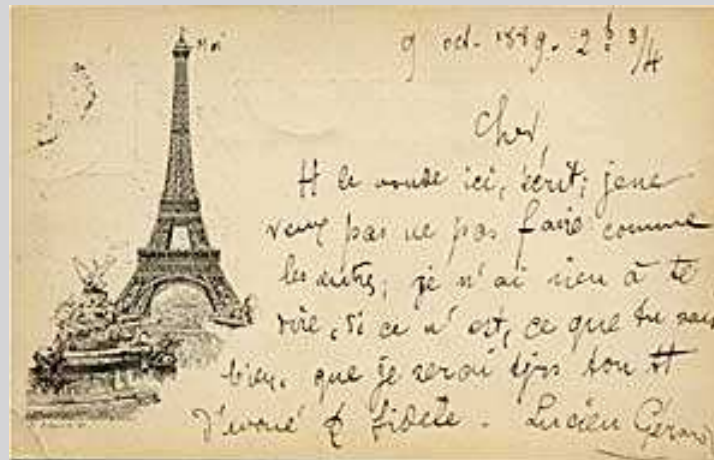 Moi
9 oct. 1889. 2 h 3/4
Cher,
tt le monde ici, écrit; je ne
veux pas ne pas faire comme
les autres; je n'ai rien à te
dire, si ce n'est, ce que tu sais
bien, que je serai tjrs ton tt
dévoué & fidèle. Lucien Gérard